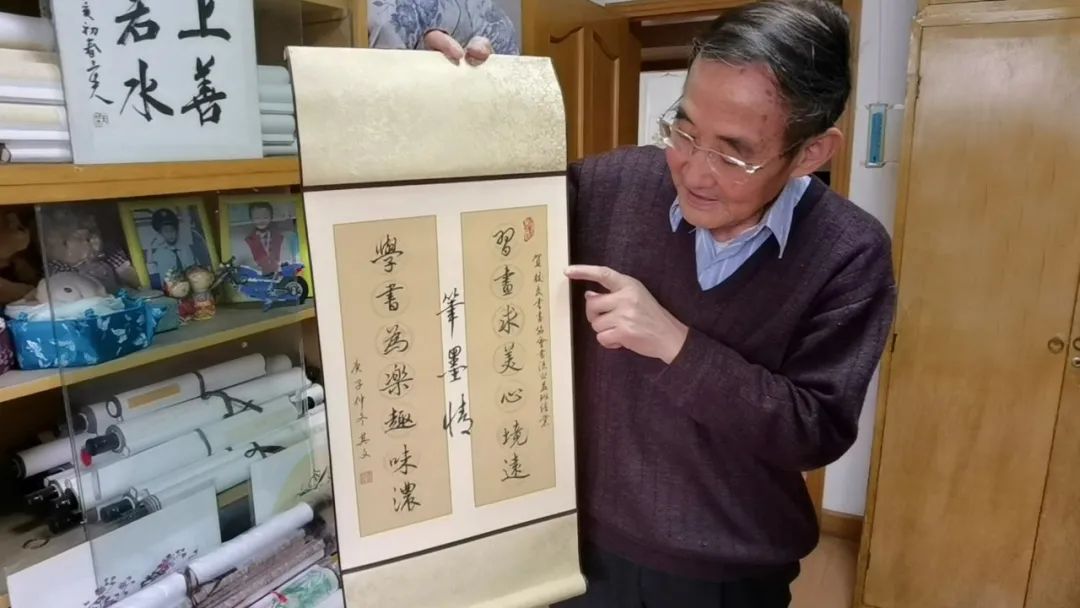 上善
若水
習畫求美心境遠
筆墨情
學書為樂趣味濃
庚子仲冬其文